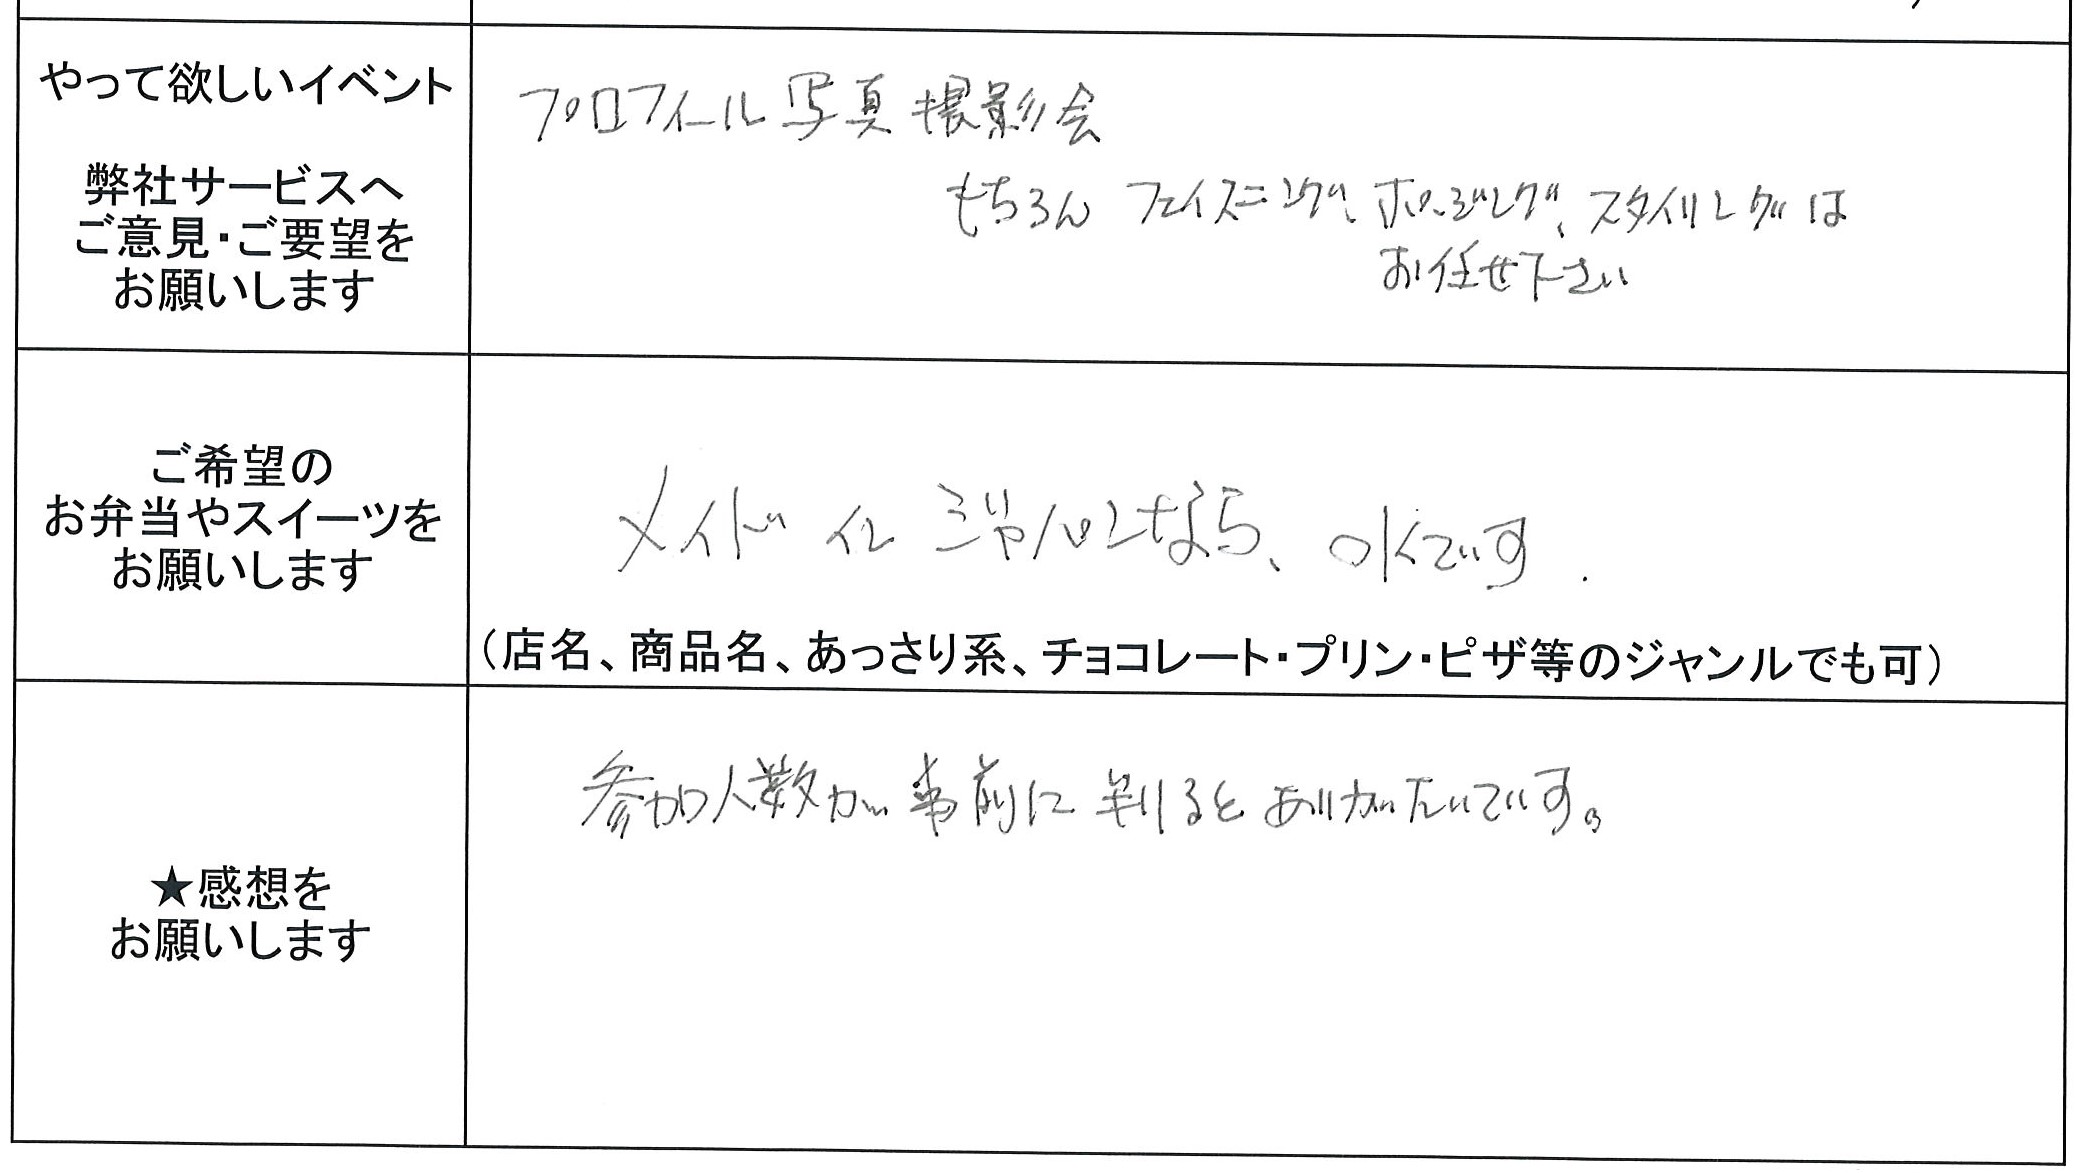 やって欲しいイベント
弊社サービスへ
ご意見・ご要望を
お願いします
プロフィール写真撮影会
もちろん フェイスニング、ポージング、スタイリングは
お任せ下さい
ご希望の
お弁当やスイーツを
お願いします
メイド イン ジャパンなら、OKです.
（店名、商品名、あっさり系、チョコレート・プリン・ピザ等のジャンルでも可）
★感想を
お願いします
参加人数が事前に判るとありがたいです。